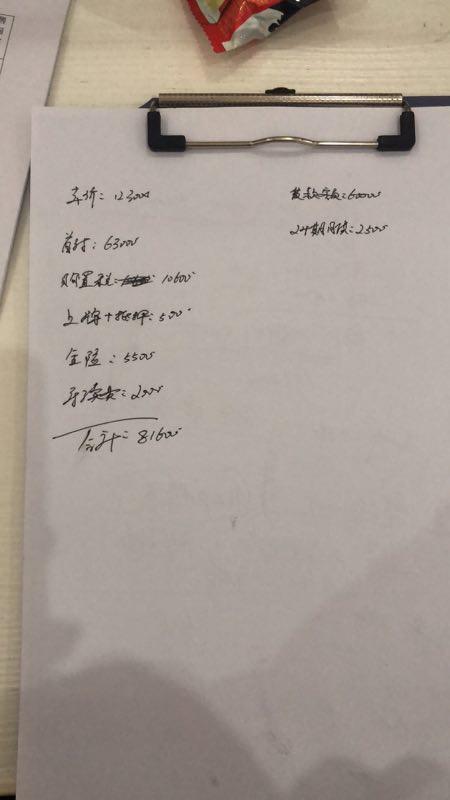 车价：123000
首付：63000
购置税： 10600
上牌+抵押：500
全险：5500
手续费：2000
合计：81600
贷款实数：60000
24期月供：2500